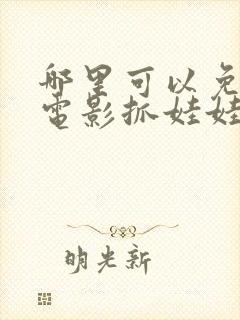 哪里可以免
电影抓娃娃
明光新